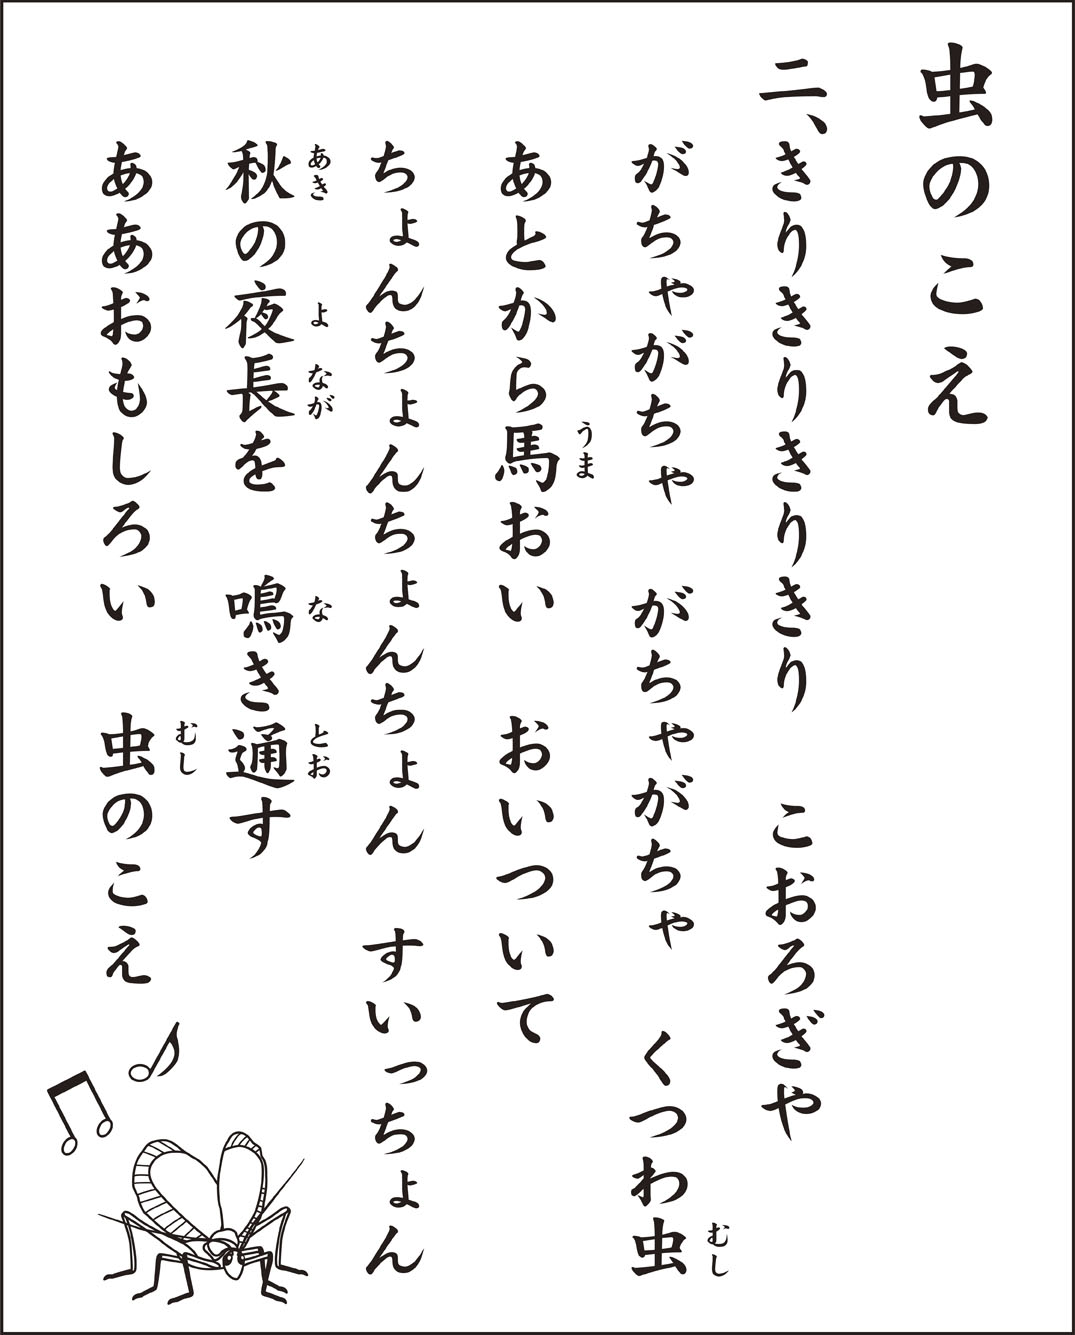 虫のこえ
二、きりきりきりきり　こおろぎや
がちゃがちゃ　がちゃがちゃ　くつわ虫
むし
あとから馬おい　おいついて
うま
ちょんちょんちょんちょん　すいっちょん
秋の夜長を　鳴き通す
あき　よ　なが　な　とお
ああおもしろい　虫のこえ
むし